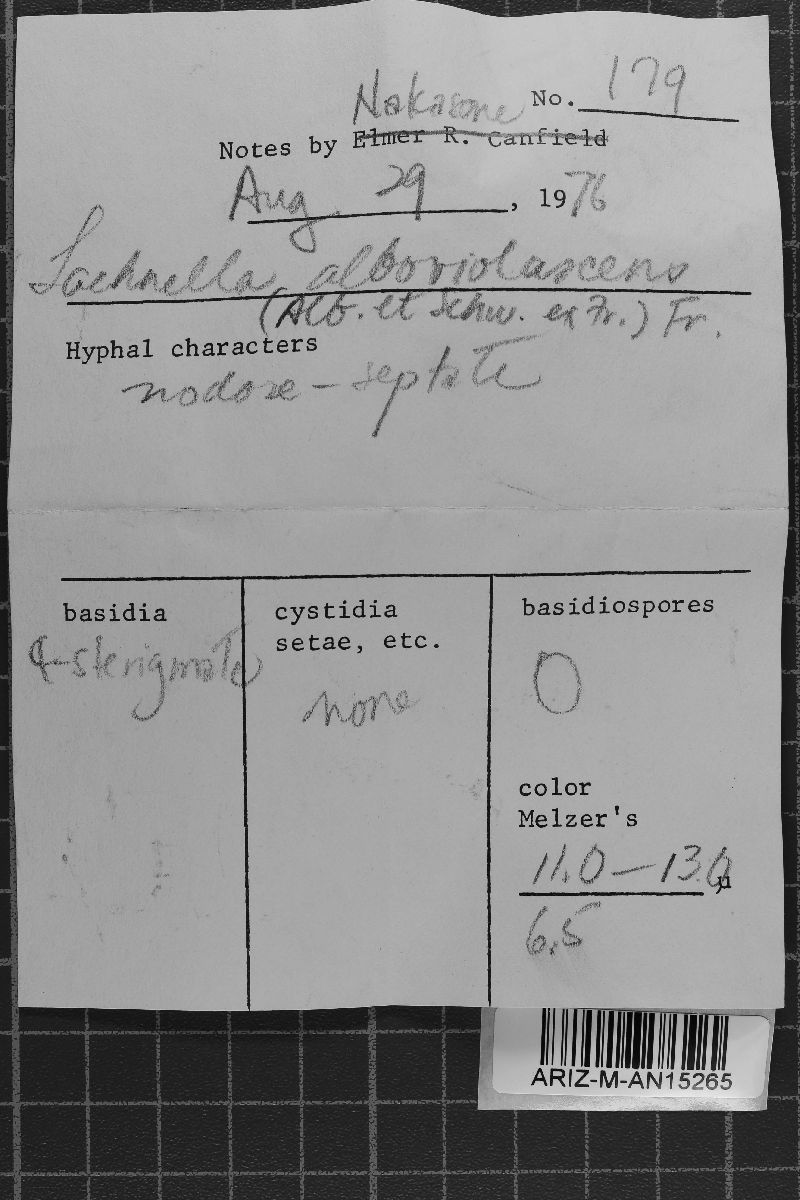 Nakasone No. 179
Notes by Elmer R. Canfield
Aug 29, 1976
Lachnella alboviolascens
(Alb. et Schw. ex Fr.) Fr.
Hyphal characters
nodose-septate
basidia
4-sterigmate
cystidia
setae, etc.
none
basidiospores
color
Melzer's
11.0-13.0 µ
6.5
ARIZ-M-AN15265